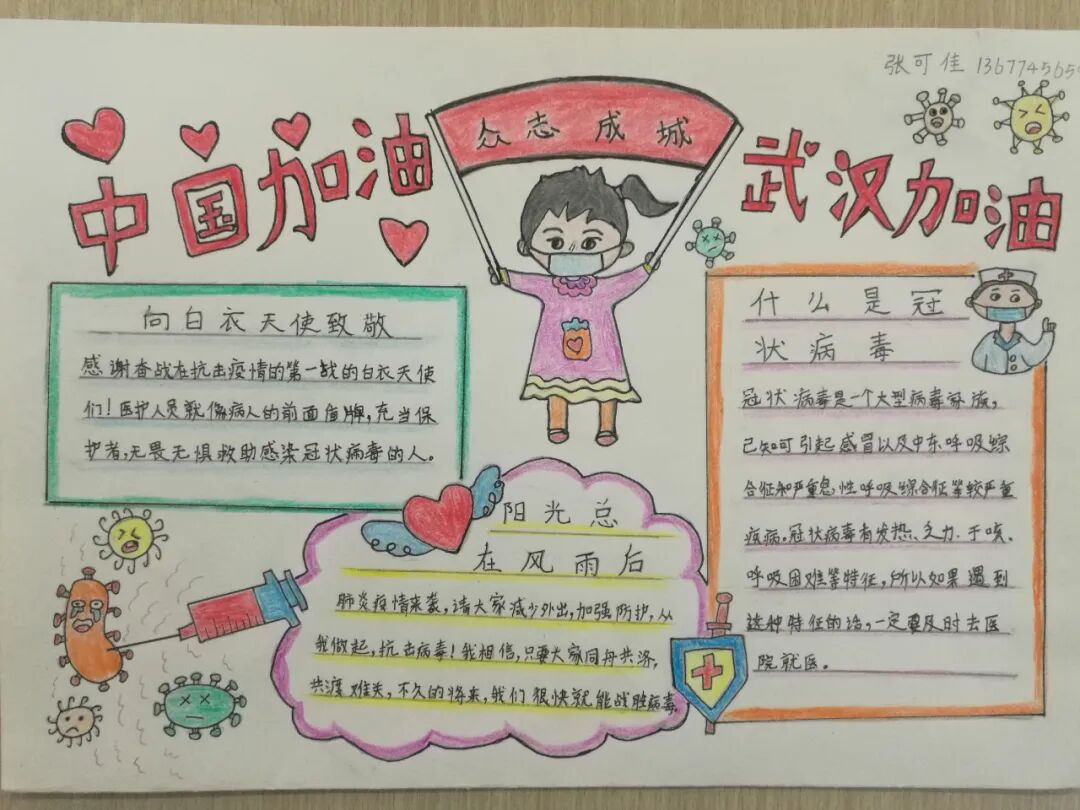 张可佳 136774565
众志成城
中国加油
武汉加油
向白衣天使致敬
感谢奋战在抗击疫情的第一战的白衣天使
们!医护人员就像病人的前面盾牌,充当保
护者,无畏无惧救助感染冠状病毒的人。
阳光总
在风雨后
肺炎疫情来袭,请大家减少外出,加强防护,从
我做起,抗击病毒!我相信,只要大家同舟共济,
共渡难关,不久的将来,我们很快就能战胜病毒.
什么是冠
状病毒
冠状病毒是一个大型病毒家族,
已知可引起感冒以及中东呼吸综
合征和严重急性呼吸综合征等较严重
疾病。冠状病毒有发热、乏力、干咳、
呼吸困难等特征,所以如果遇到
这种特征的话,一定要及时去医
院就医。